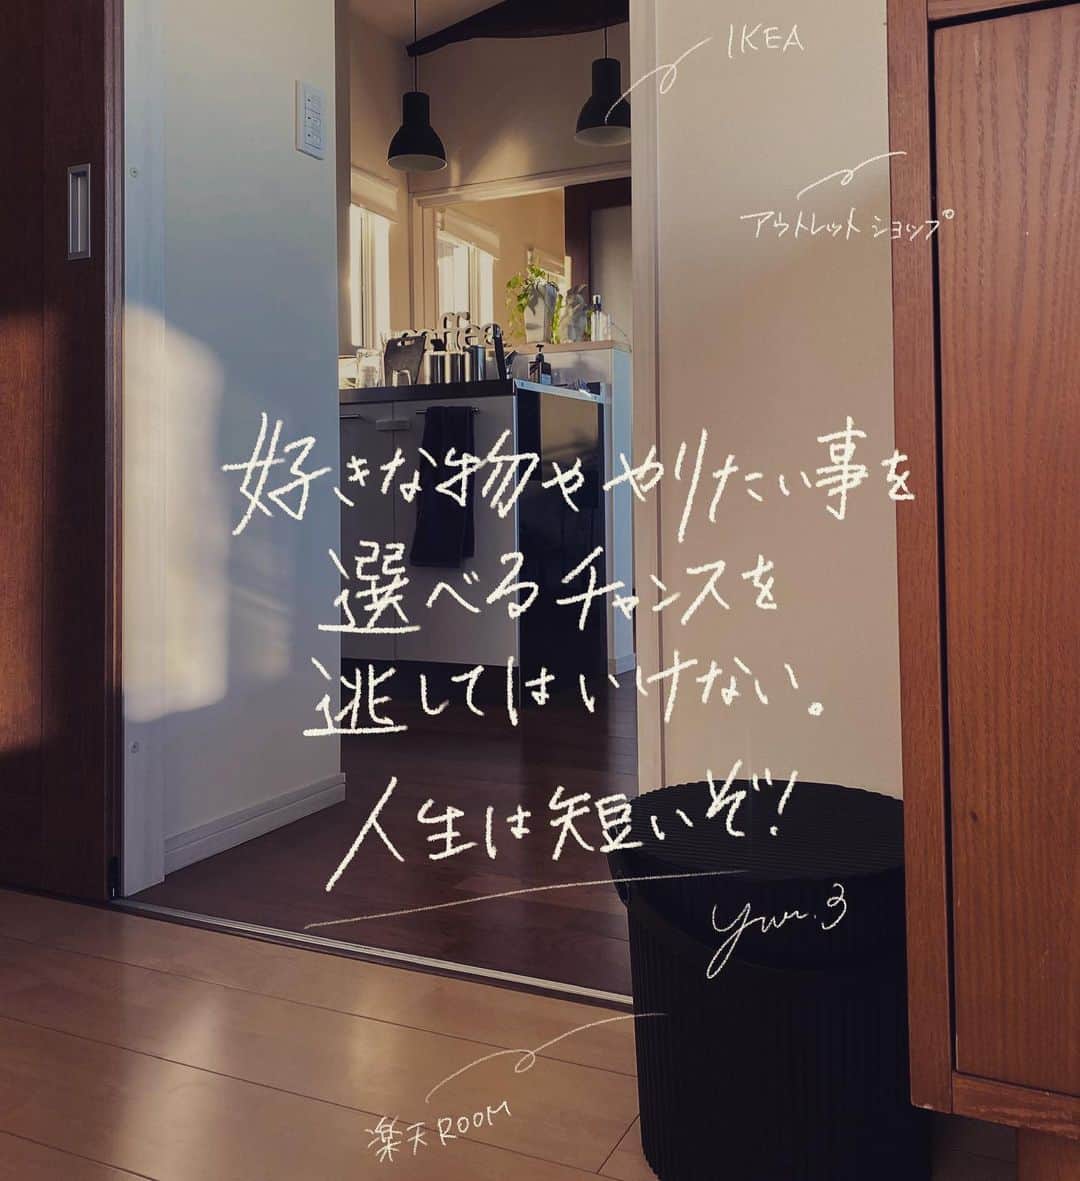 IKEA
アウトレットショップ
coffee
好きな物ややりたい事を
選べるチャンスを
逃してはいけない。
人生は短いぞ!
楽天ROOM